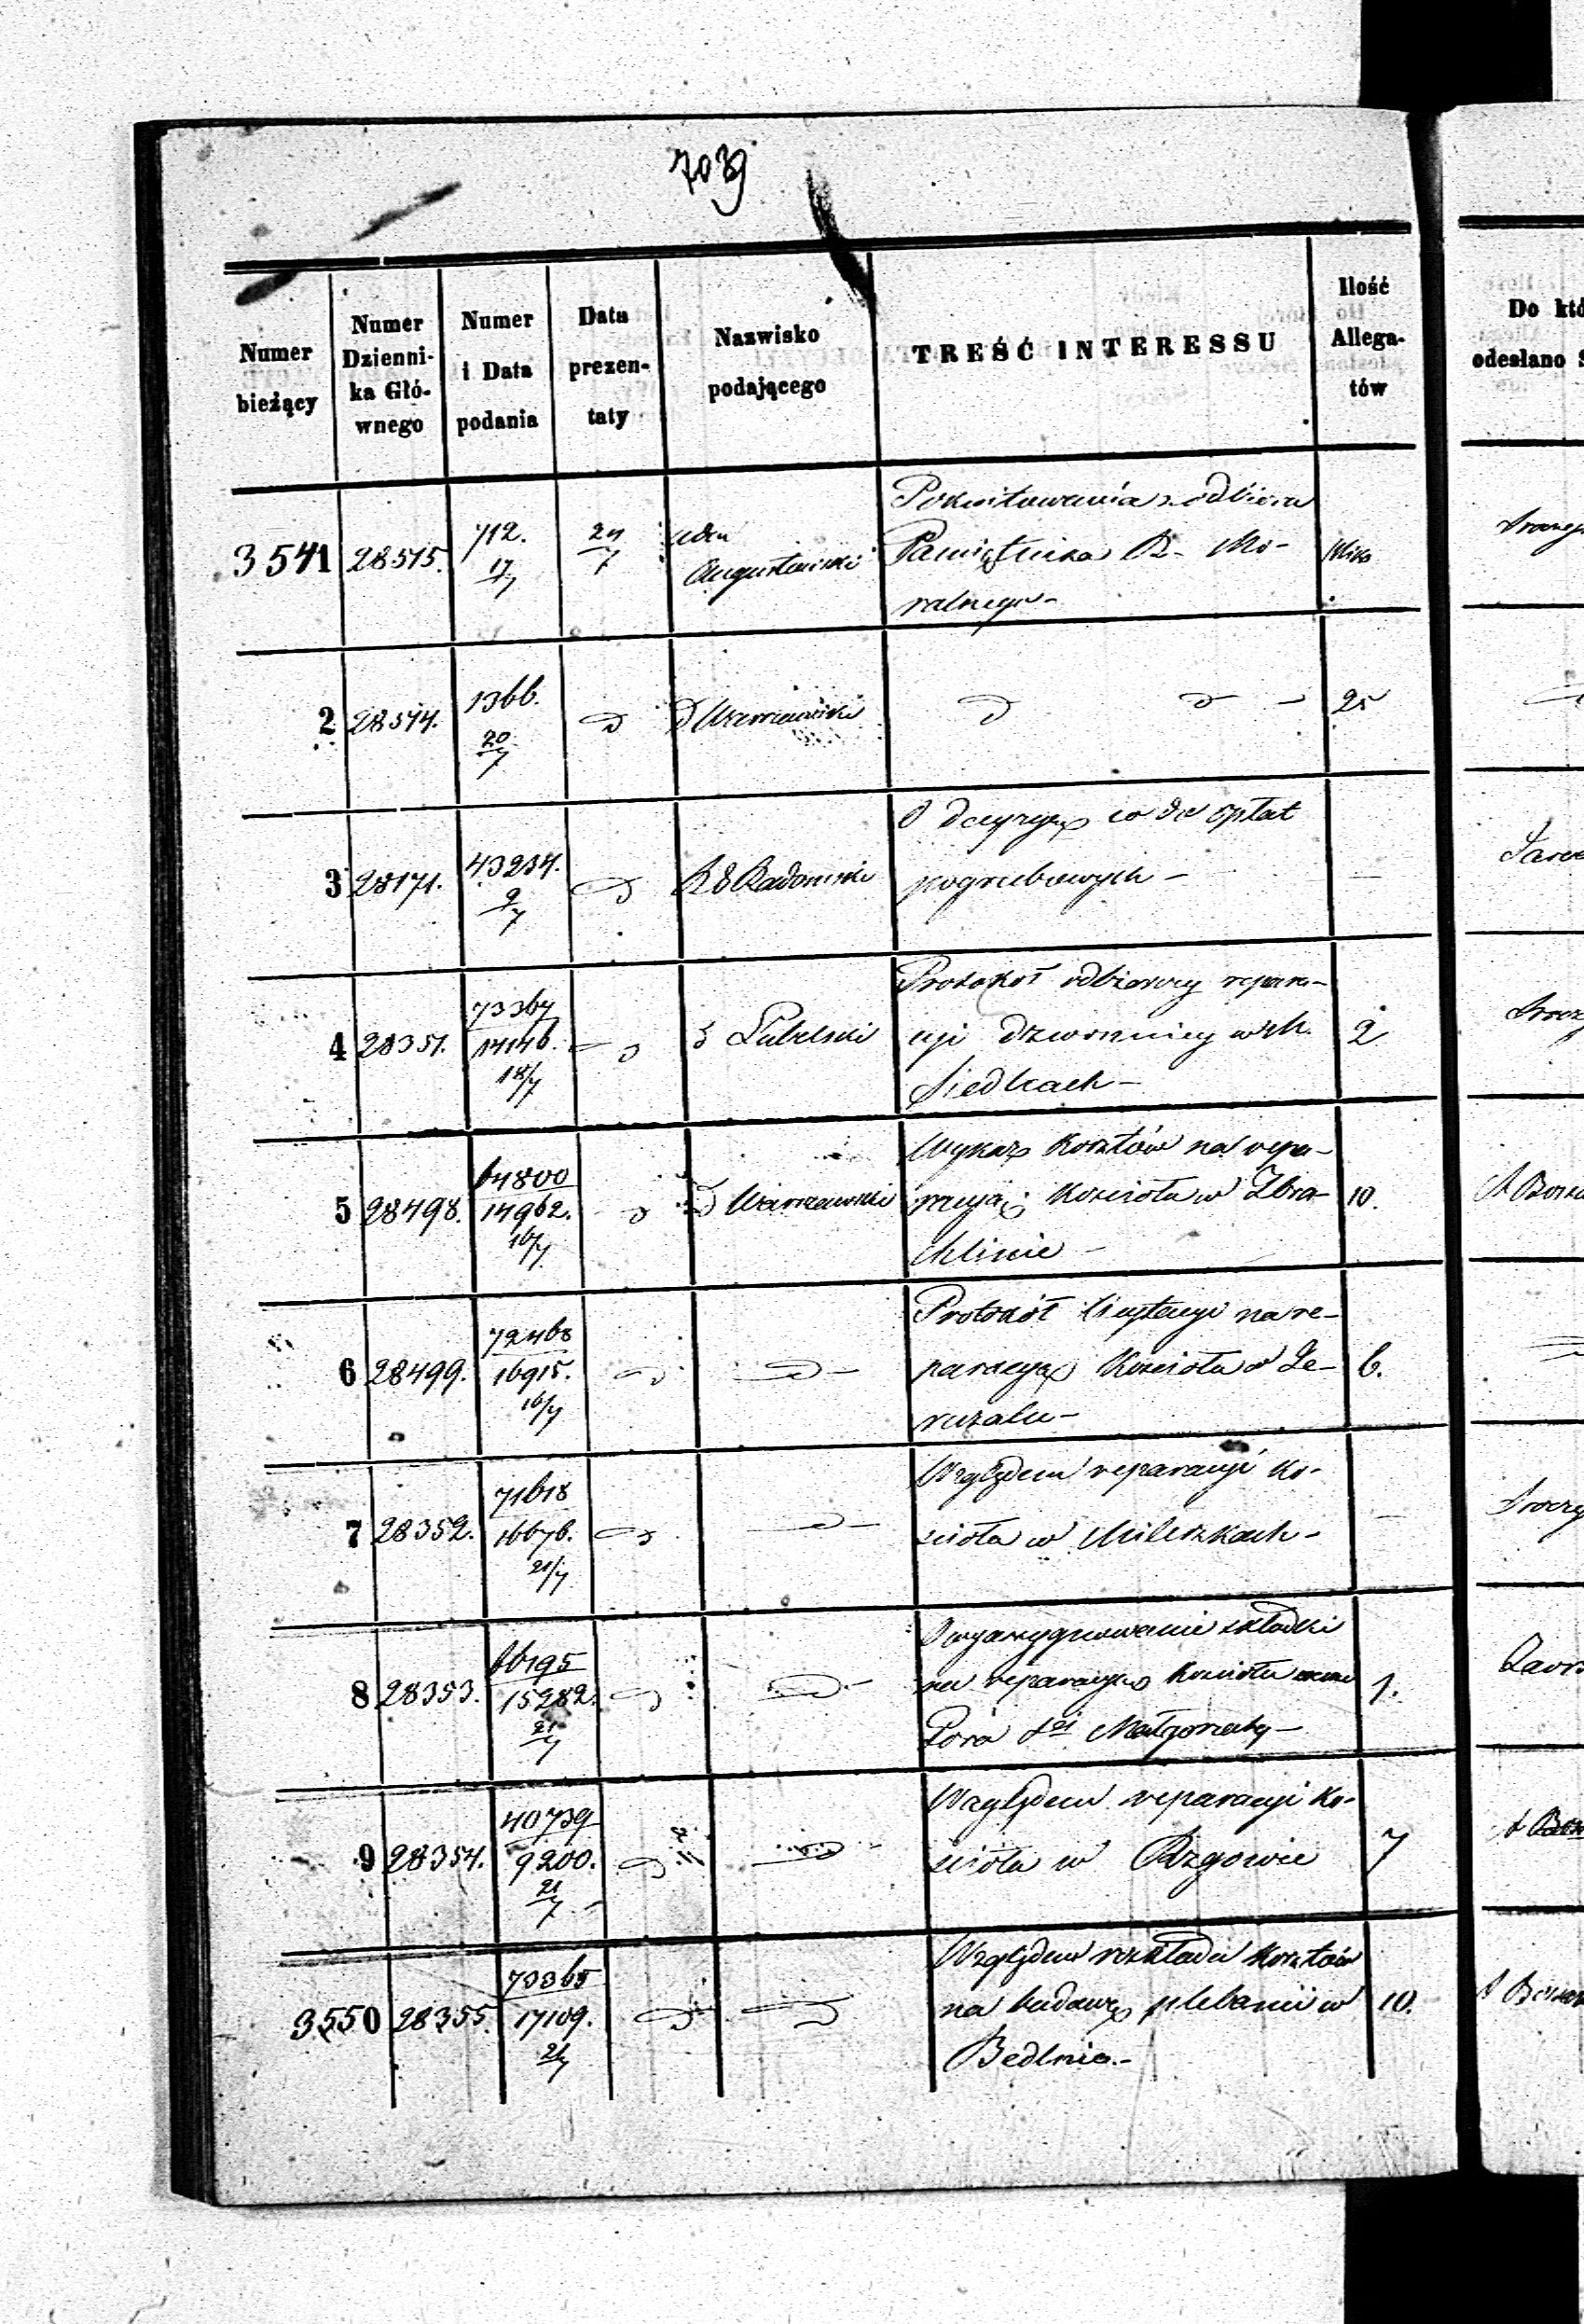 709
Numer bieżący
Numer Dzienni- ka Głó- wnego
Numer i Data podania
Data prezen- taty
Nazwisko podającego
TREŚĆ INTERESSU
Ilość Allega- tów
Do któ
odesłano S
3541 28515. 712. 17/7 24/7 Augustowski
Pokwitowania z odbioru
Pamiętnika R. Mo-
ralnego -
2 28514. 1366. 20/7 d d Warszawski d d - 25
3 28171. 43234. 9/7 d R G Radomski
O decyzyę co do opłat
pogrzebowych - -
4 28351. 73367 14146. 18/7 d Lubelski
Protokół odbiorczy repara-
cyi dzwonnicy w
Siedlcach - 2
5 28498. 64800 14962. 16/7 d d Warszawski
Wykaz kosztów na repa-
racyą kościoła w Zbra-
chlinie - 10.
6 28499. 72468 16915. 16/7 d d -
Protokół licytacyi na re-
paracyę kościoła w Je-
ruzalu - 6.
7 28352. 71618 16676. 21/7 d d -
Względem reparacyi ko-
ścioła w Mileszkach - -
8 28353. 66195 15282. 21/7 d d -
O wyasygnowanie składki
na reparacyę kościoła
Góra Stej Małgorzaty - 1.
9 28354. 40739 9200. 21/7 d d -
Względem reparacyi ko-
ścioła w Rzgowie 7
3550 28355. 73365 17109. 21/7 d d
Względem rozkładu kosztów
na budowę plebanii w
Bedlnie. - 10.